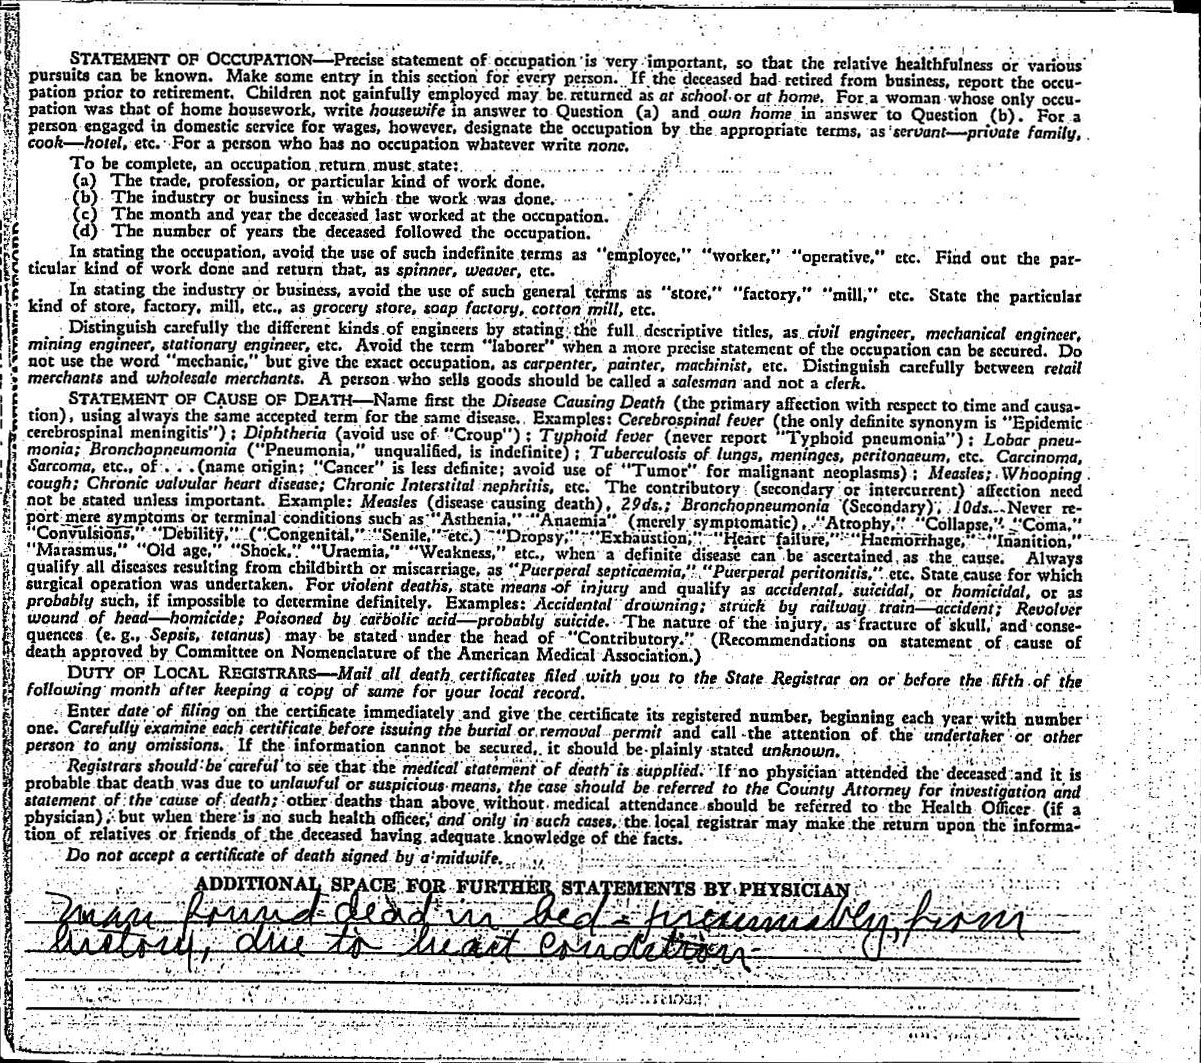 STATEMENT OF OCCUPATION—Precise statement of occupation is very important, so that the relative healthfulness or various
pursuits can be known. Make some entry in this section for every person. If the deceased had retired from business, report the occu-
pation prior to retirement. Children not gainfully employed may be returned as at school or at home. For a woman whose only occu-
pation was that of home housework, write housewife in answer to Question (a) and own home in answer to Question (b). For a
person engaged in domestic service for wages, however, designate the occupation by the appropriate terms, as servant—private family,
cook—hotel, etc. For a person who has no occupation whatever write none.
To be complete, an occupation return must state:
(a) The trade, profession, or particular kind of work done.
(b) The industry or business in which the work was done.
(c) The month and year the deceased last worked at the occupation.
(d) The number of years the deceased followed the occupation.
In stating the occupation, avoid the use of such indefinite terms as "employee," "worker," "operative," etc. Find out the par-
ticular kind of work done and return that, as spinner, weaver, etc.
In stating the industry or business, avoid the use of such general terms as "store," "factory," "mill," etc. State the particular
kind of store, factory, mill, etc., as grocery store, soap factory, cotton mill, etc.
Distinguish carefully the different kinds of engineers by stating the full descriptive titles, as civil engineer, mechanical engineer,
mining engineer, stationary engineer, etc. Avoid the term "laborer" when a more precise statement of the occupation can be secured. Do
not use the word "mechanic," but give the exact occupation, as carpenter, painter, machinist, etc. Distinguish carefully between retail
merchants and wholesale merchants. A person who sells goods should be called a salesman and not a clerk.
STATEMENT OF CAUSE OF DEATH—Name first the Disease Causing Death (the primary affection with respect to time and causa-
tion), using always the same accepted term for the same disease. Examples: Cerebrospinal fever (the only definite synonym is "Epidemic
cerebrospinal meningitis"); Diphtheria (avoid use of "Croup"); Typhoid fever (never report "Typhoid pneumonia"); Lobar pneu-
monia; Bronchopneumonia ("Pneumonia," unqualified, is indefinite); Tuberculosis of lungs, meninges, peritonaeum, etc. Carcinoma,
Sarcoma, etc., of . . . (name origin; "Cancer" is less definite; avoid use of "Tumor" for malignant neoplasms); Measles; Whooping
cough; Chronic valvular heart disease; Chronic Interstital nephritis, etc. The contributory (secondary or intercurrent) affection need
not be stated unless important. Example: Measles (disease causing death), 29ds.; Bronchopneumonia (Secondary), 10ds. Never re-
port mere symptoms or terminal conditions such as "Asthenia," "Anaemia" (merely symptomatic), "Atrophy," "Collapse," "Coma,"
"Convulsions," "Debility," ("Congenital," "Senile," etc.) "Dropsy," "Exhaustion," "Heart failure," "Haemorrhage," "Inanition,"
"Marasmus," "Old age," "Shock," "Uraemia," "Weakness," etc., when a definite disease can be ascertained as the cause. Always
qualify all diseases resulting from childbirth or miscarriage, as "Puerperal septicaemia," "Puerperal peritonitis," etc. State cause for which
surgical operation was undertaken. For violent deaths, state means of injury and qualify as accidental, suicidal, or homicidal, or as
probably such, if impossible to determine definitely. Examples: Accidental drowning; struck by railway train—accident; Revolver
wound of head—homicide; Poisoned by carbolic acid—probably suicide. The nature of the injury, as fracture of skull, and conse-
quences (e. g., Sepsis, tetanus) may be stated under the head of "Contributory." (Recommendations on statement of cause of
death approved by Committee on Nomenclature of the American Medical Association.)
DUTY OF LOCAL REGISTRARS—Mail all death certificates filed with you to the State Registrar on or before the fifth of the
following month after keeping a copy of same for your local record.
Enter date of filing on the certificate immediately and give the certificate its registered number, beginning each year with number
one. Carefully examine each certificate before issuing the burial or removal permit and call the attention of the undertaker or other
person to any omissions. If the information cannot be secured, it should be plainly stated unknown.
Registrars should be careful to see that the medical statement of death is supplied. If no physician attended the deceased and it is
probable that death was due to unlawful or suspicious means, the case should be referred to the County Attorney for investigation and
statement of the cause of death; other deaths than above without medical attendance should be referred to the Health Officer (if a
physician), but when there is no such health officer, and only in such cases, the local registrar may make the return upon the informa-
tion of relatives or friends of the deceased having adequate knowledge of the facts.
Do not accept a certificate of death signed by a midwife.
ADDITIONAL SPACE FOR FURTHER STATEMENTS BY PHYSICIAN
Man found dead in bed - presumably, from
history, due to heart condition-